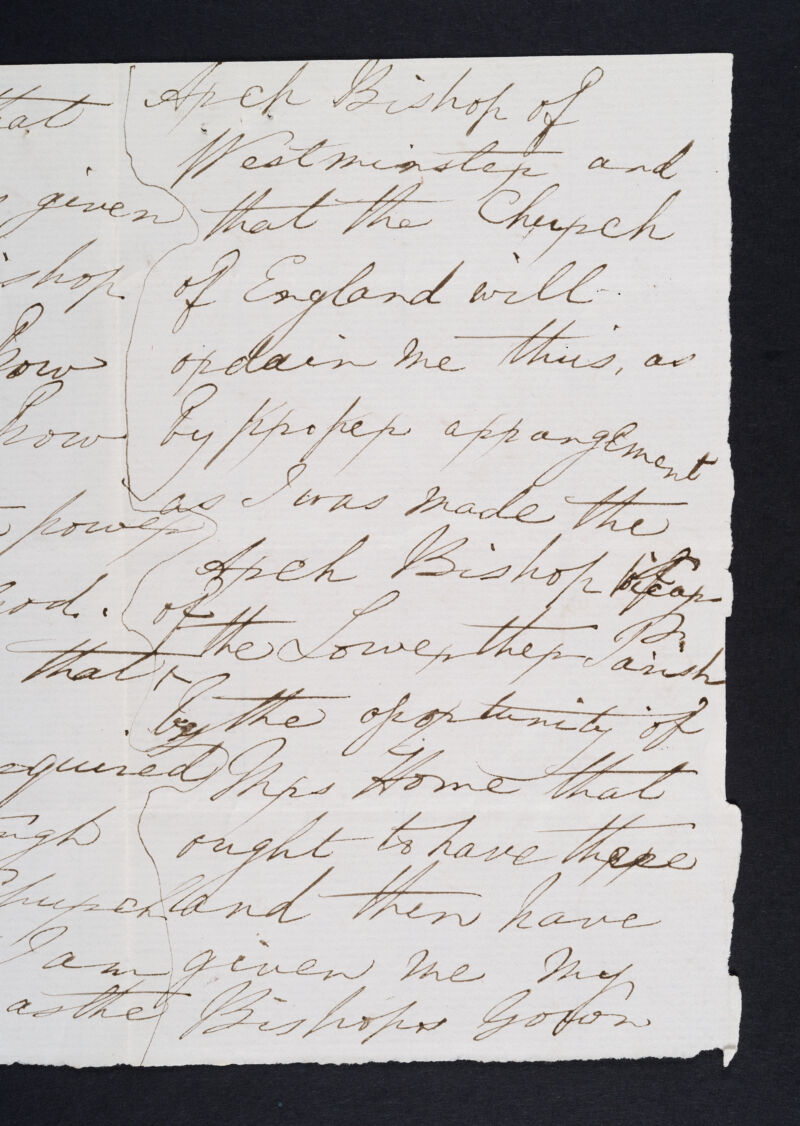 hat
given
ishop
how
how
power
God.
that
equired
ugh
Church
I am
as the
Arch Bishop of
Westminster and
that the Church
of England will
ordain me this, as
by proper arrangement
as I was made the
Arch Bishop
of
the Lowerther Parish
by the oportunity of
Mrs Home that
ought to have there
and then have
given me my
Bishops Gown